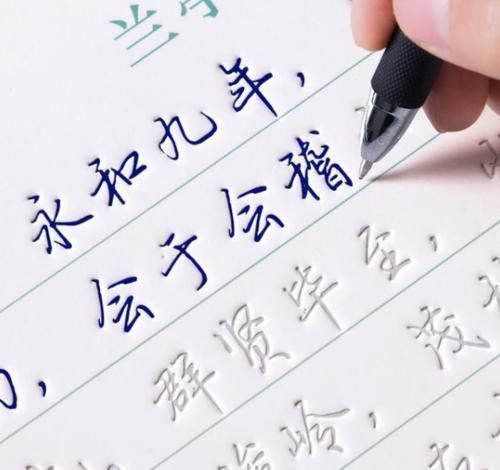 兰
永和九年，
，会于会稽
群贤毕至，
岭，茂